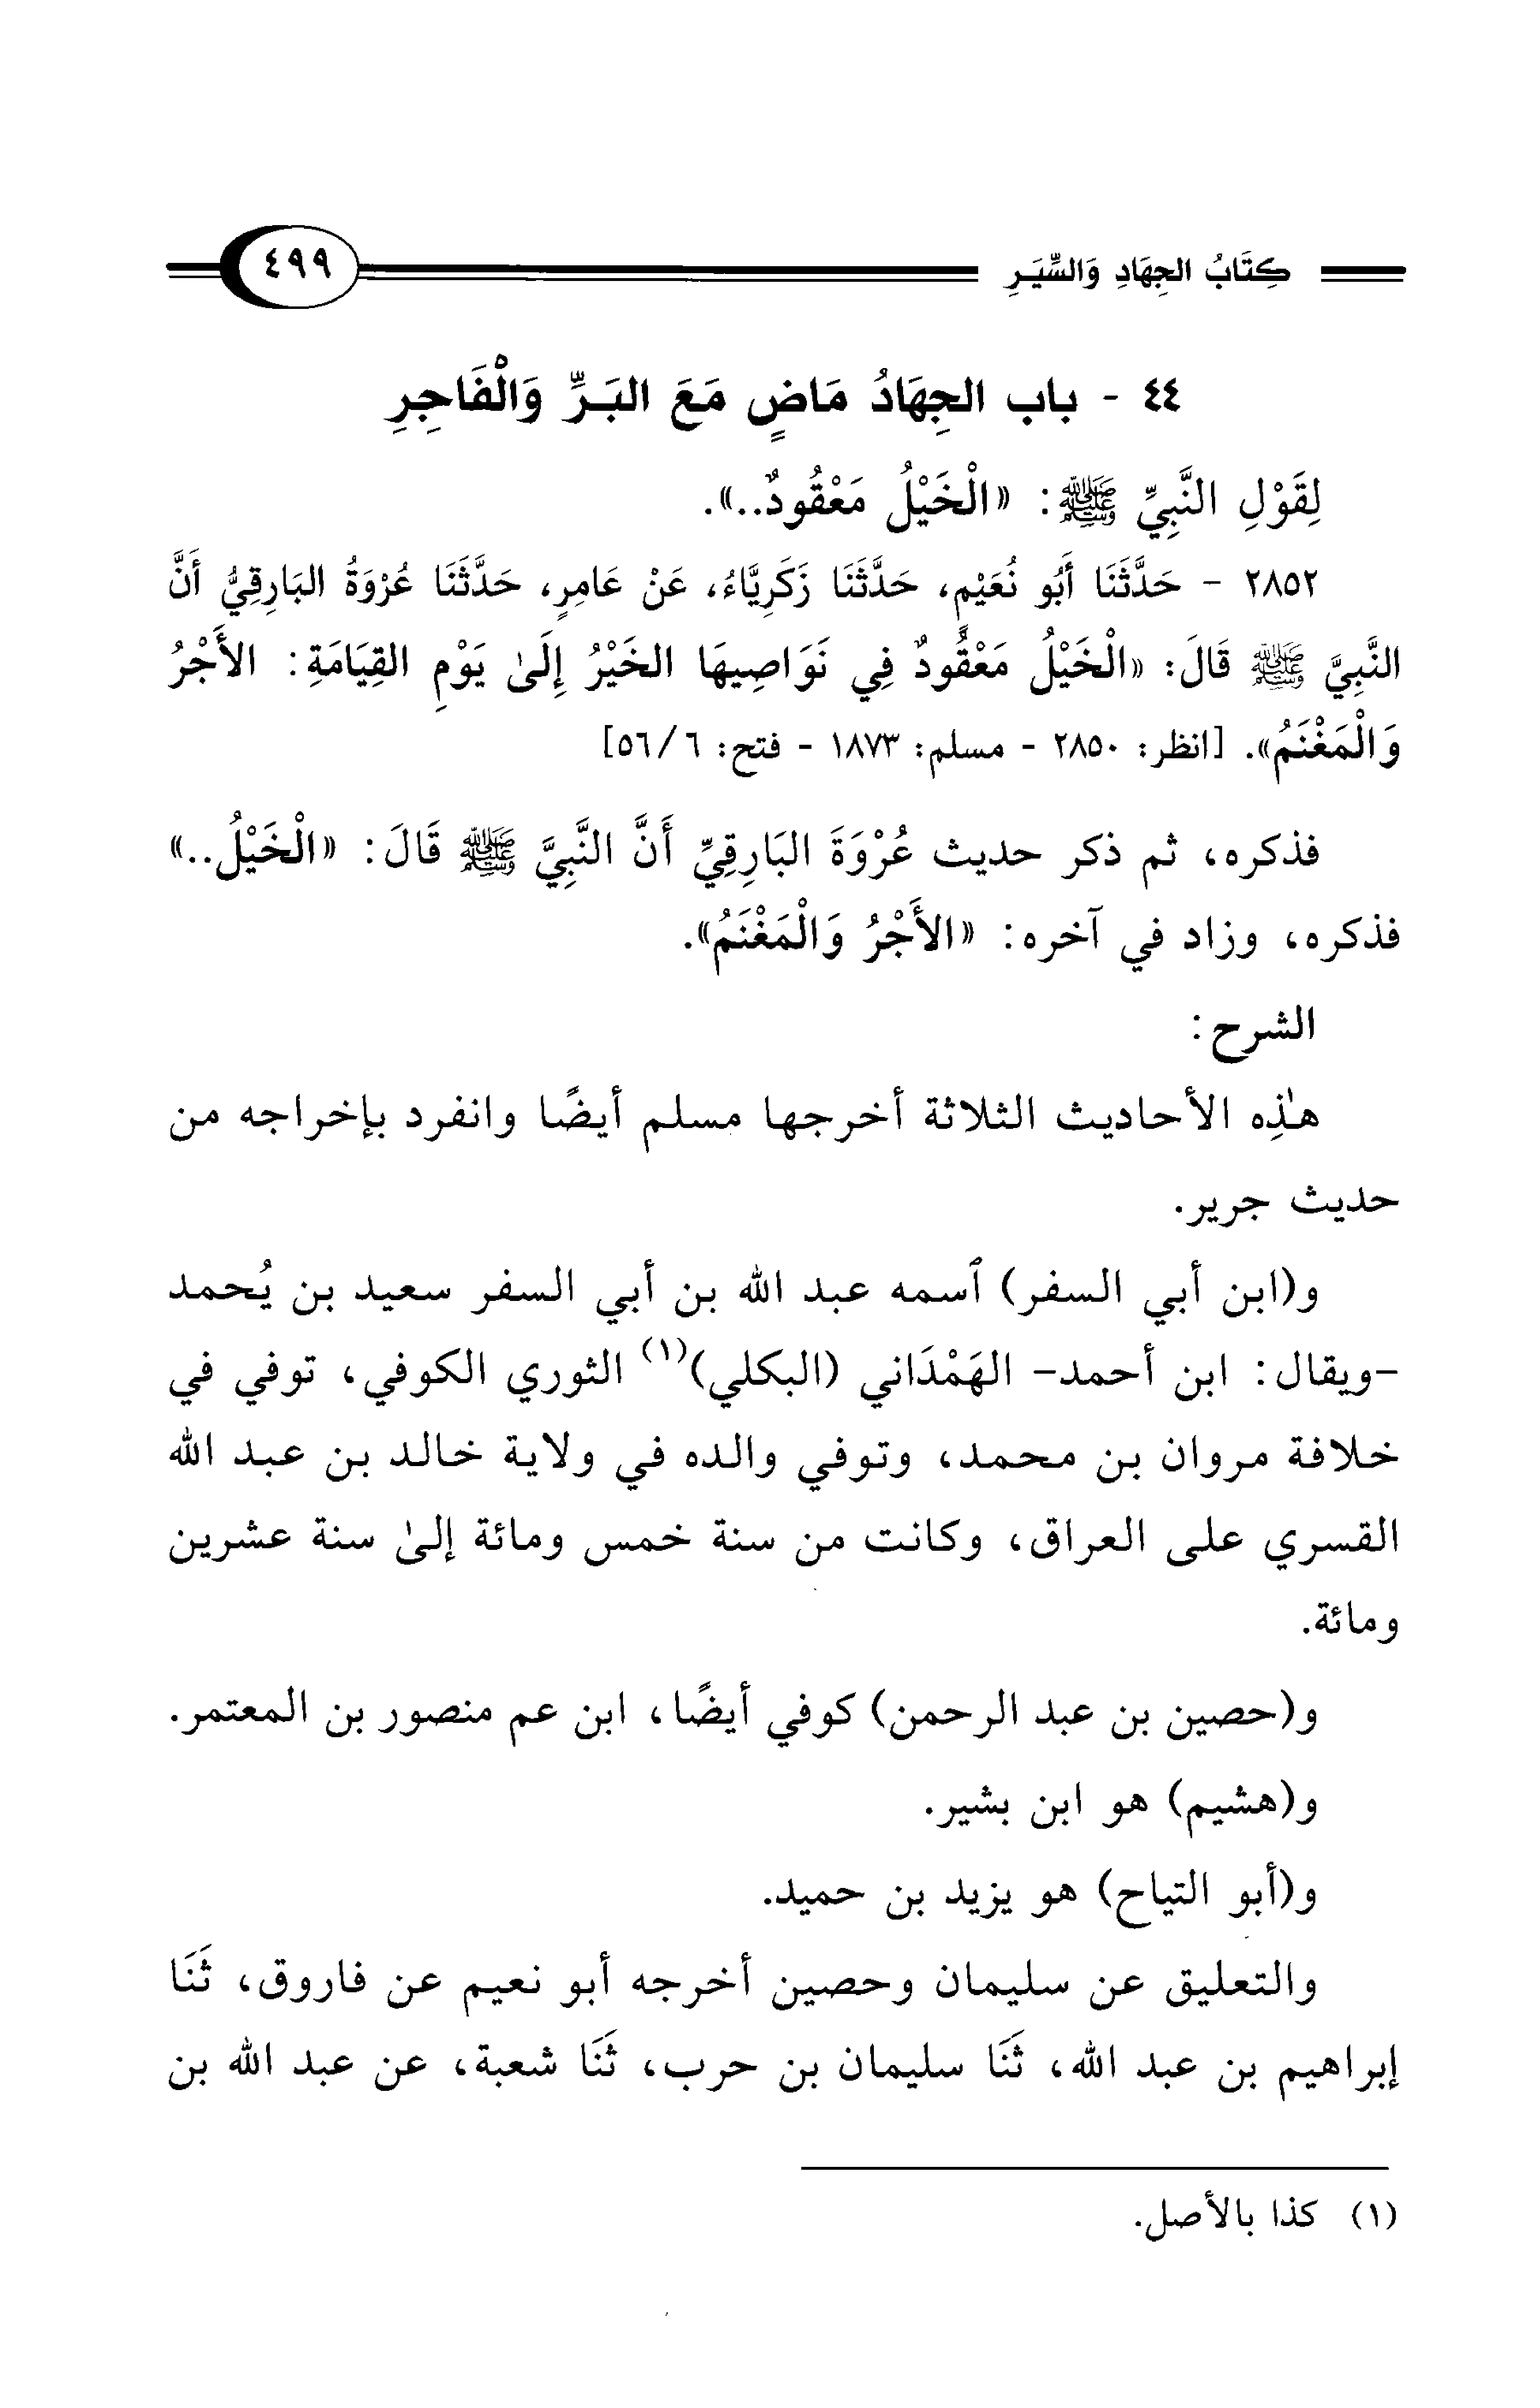 كِتَابُ الجِهَادِ وَالسِّيَرِ
٤٩٩
٤٤ - باب الجِهَادُ مَاضٍ مَعَ البَرِّ وَالْفَاجِرِ
لِقَوْلِ النَّبِيِّ ﷺ: «الْخَيْلُ مَعْقُودٌ..».
٢٨٥٢ - حَدَّثَنَا أَبُو نُعَيْمٍ، حَدَّثَنَا زَكَرِيَّاءُ، عَنْ عَامِرٍ، حَدَّثَنَا عُرْوَةُ البَارِقِيُّ أَنَّ
النَّبِيَّ ﷺ قَالَ: «الْخَيْلُ مَعْقُودٌ فِي نَوَاصِيهَا الخَيْرُ إِلَىٰ يَوْمِ القِيَامَةِ: الأَجْرُ
وَالْمَغْنَمُ». [انظر: ٢٨٥٠ - مسلم: ١٨٧٣ - فتح: ٦/ ٥٦]
فذكره، ثم ذكر حديث عُرْوَةَ البَارِقِيِّ أَنَّ النَّبِيَّ ﷺ قَالَ: «الْخَيْلُ..»
فذكره، وزاد في آخره: «الأَجْرُ وَالْمَغْنَمُ».
الشرح:
هذِه الأحاديث الثلاثة أخرجها مسلم أيضًا وانفرد بإخراجه من
حديث جرير.
و(ابن أبي السفر) ٱسمه عبد الله بن أبي السفر سعيد بن يُحمد
-ويقال: ابن أحمد- الهَمْدَاني (البكلي)(١) الثوري الكوفي، توفي في
خلافة مروان بن محمد، وتوفي والده في ولاية خالد بن عبد الله
القسري على العراق، وكانت من سنة خمس ومائة إلىٰ سنة عشرين
ومائة.
و(حصين بن عبد الرحمن) كوفي أيضًا، ابن عم منصور بن المعتمر.
و(هشيم) هو ابن بشير.
و(أبو التياح) هو يزيد بن حميد.
والتعليق عن سليمان وحصين أخرجه أبو نعيم عن فاروق، ثَنَا
إبراهيم بن عبد الله، ثَنَا سليمان بن حرب، ثَنَا شعبة، عن عبد الله بن
(١) كذا بالأصل.